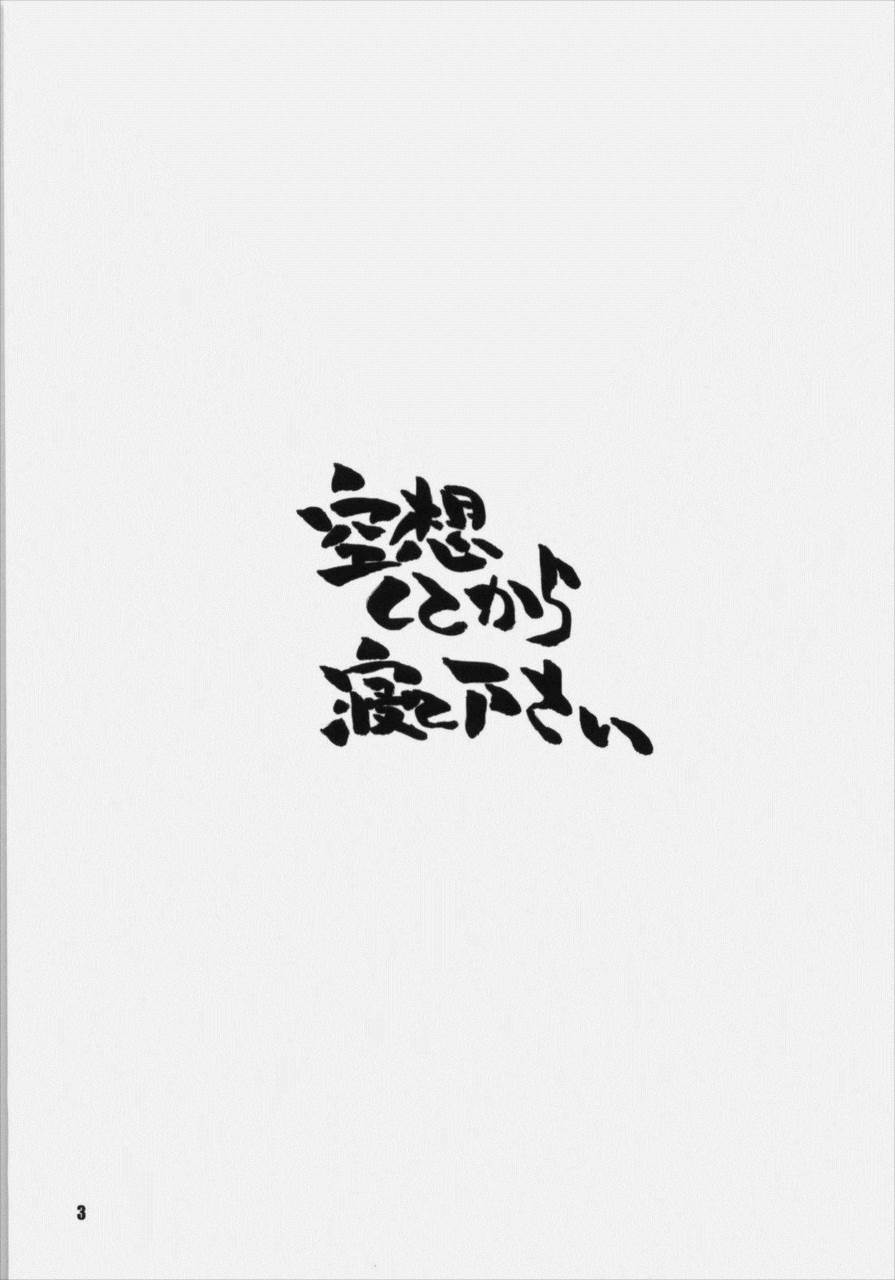 空想
ここから
寝て下さい
3